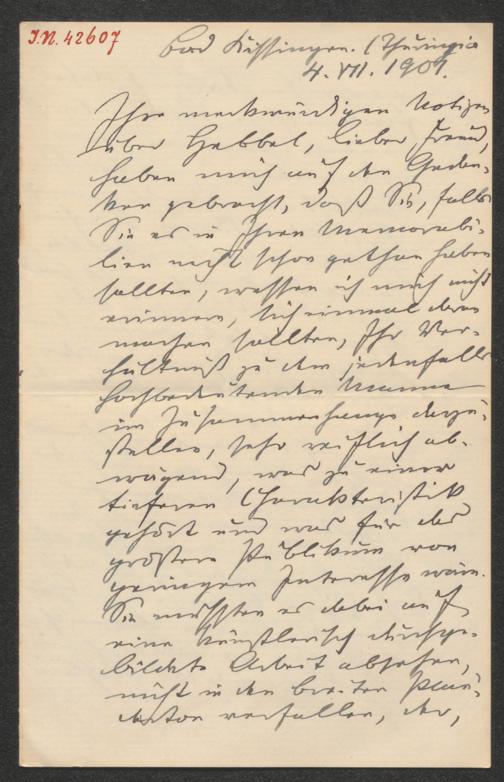 I.N. 42607
Bad Kissingen. (Thüringia
4. VII. 1901.
Ihre merkwürdigen Notizen
über Hebbel, lieber Freund,
haben mich auf den Gedan-
ken gebracht, daß Sie, falls
Sie es in Ihren Memorabi-
lien nicht schon gethan haben
sollten, wessen ich mich nicht
erinnere, sich einmal daran
machen sollten, Ihr Ver-
hältniß zu dem jedenfalls
hochbedeutenden Manne
im Zusammenhange darzu-
stellen, sehr reiflich ab-
wägend, was zu einer
tieferen Charakteristik
gehört und was für das
größere Publikum von
geringem Interesse wäre.
Sie müssten es dabei auf
eine künstlerisch durchge-
bildete Arbeit absehen,
nicht in den breiten Plau-
derton verfallen, der,